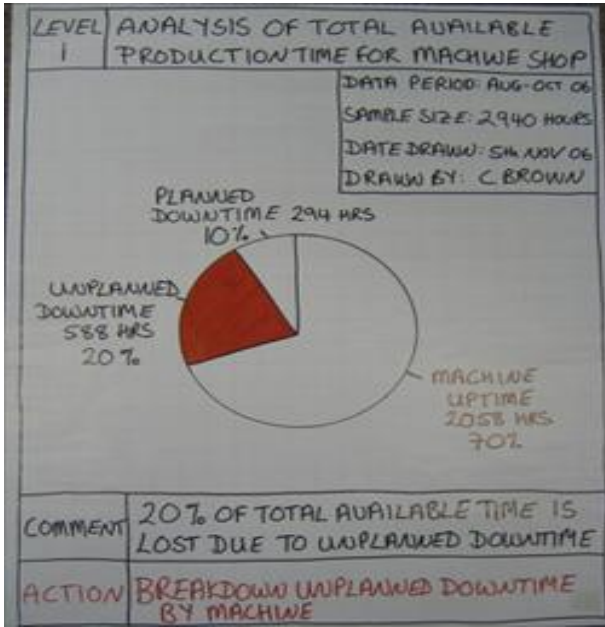 LEVEL 1
ANALYSIS OF TOTAL AVAILABLE
PRODUCTION TIME FOR MACHINE SHOP
DATA PERIOD: AUG-OCT 06
SAMPLE SIZE: 2940 HOURS
DATE DRAWN: 5th NOV 06
DRAWN BY: C BROWN
PLANNED
DOWNTIME 294 HRS
10%
UNPLANNED
DOWNTIME
588 HRS
20%
MACHINE
UPTIME
2058 HRS
70%
COMMENT
20% OF TOTAL AVAILABLE TIME IS
LOST DUE TO UNPLANNED DOWNTIME
ACTION
BREAKDOWN UNPLANNED DOWNTIME
BY MACHINE